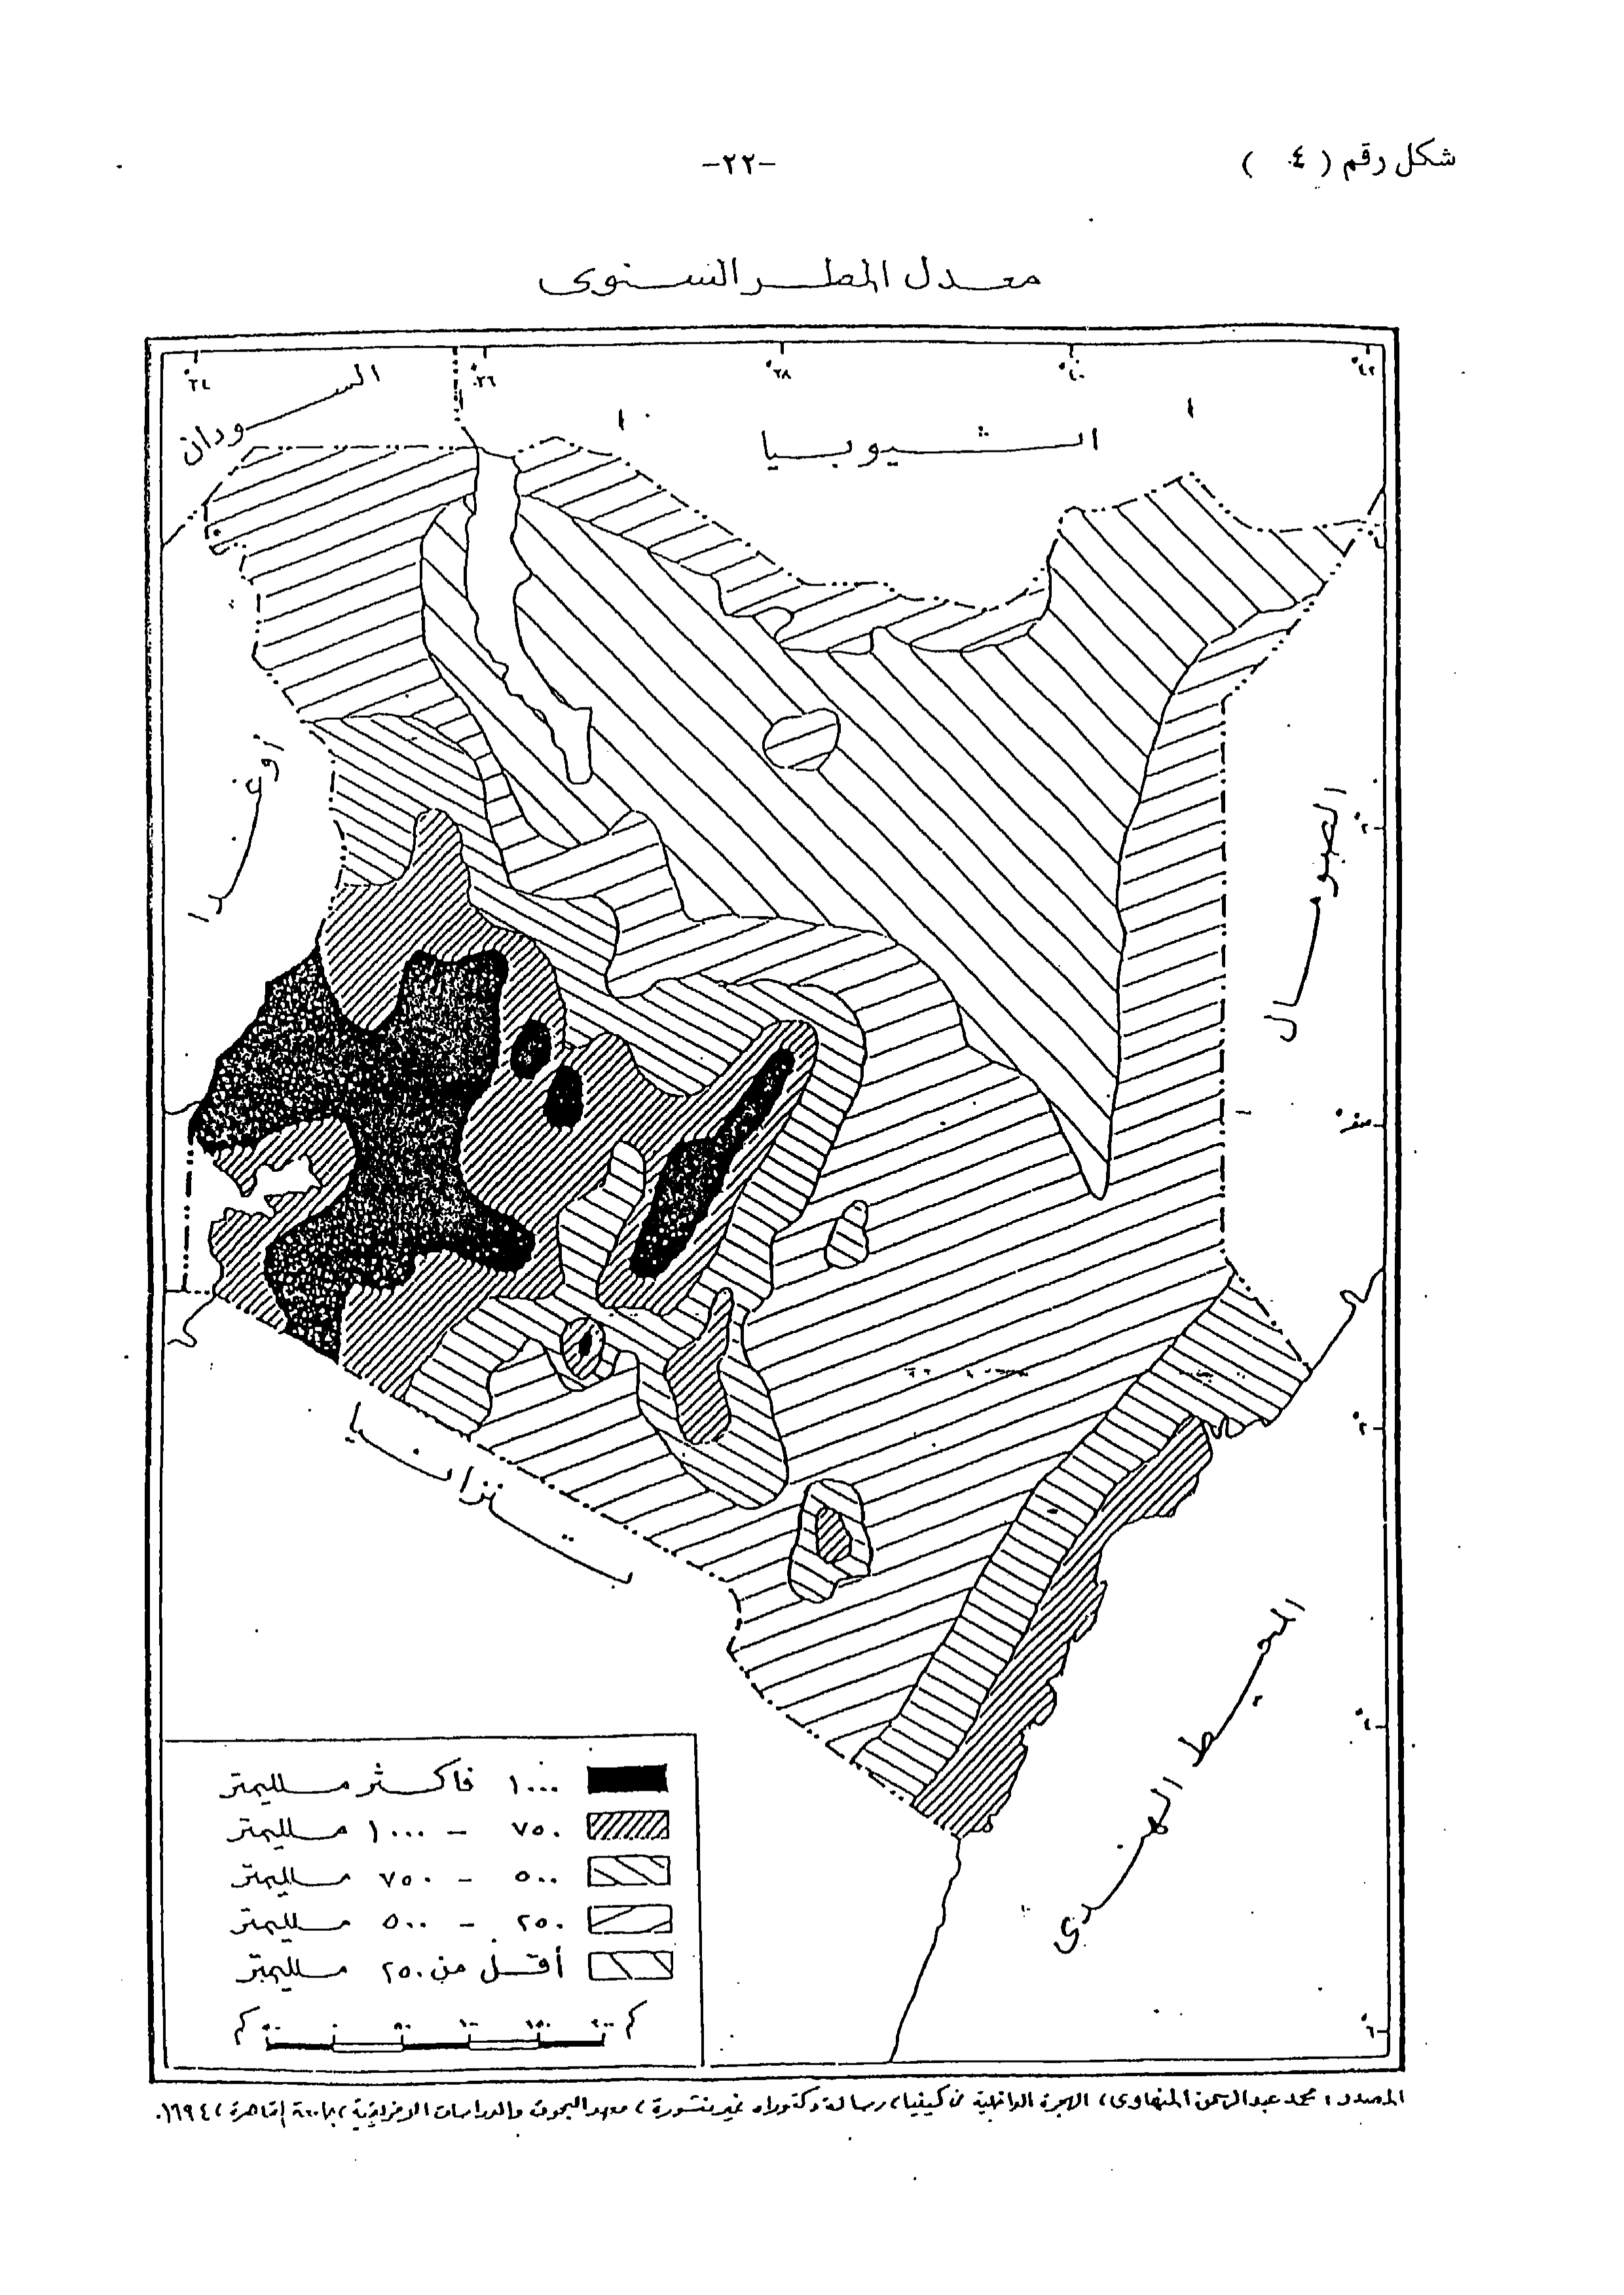 شكل رقم ( ٤ )
-٢٢-
معدل المطر السنوى
٣٤°
٣٦°
٣٨°
٤٠°
٤٢°
السودان
اثيوبيا
أوغندا
الصومال
٢°
صفر°
٢°
تنزانيا
٤°
المحيط الهندى
١٠٠٠ فاكثر ملليمتر
٧٥٠ - ١٠٠٠ ملليمتر
٥٠٠ - ٧٥٠ ملليمتر
٢٥٠ - ٥٠٠ ملليمتر
أقل من ٢٥٠ ملليمتر
كم ٥٠ ٠ ٥٠ ١٠٠ ١٥٠ ٢٠٠ كم
٦°
المصدر : محمد عبدالرحمن الهجرة الداخلية فى كينيا، رسالة دكتوراه غير منشورة ، معهد البحوث والدراسات الافريقية ، جامعة القاهرة ،